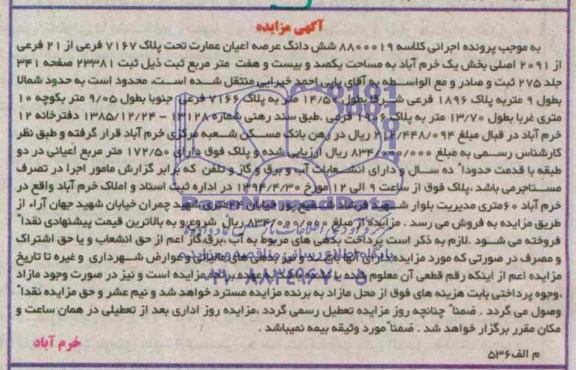 آگهی مزایده
به موجب پرونده اجرائی کلاسه ۸۸۰۰۰۱۹ شش دانگ عرصه اعیان عمارت تحت پلاک ۷۱۶۷ فرعی از ۲۱ فرعی
از ۲۰۹۱ اصلی بخش یک خرم آباد به مساحت یکصد و بیست و هفت متر مربع ثبت ذیل ثبت ۲۲۳۸۱ صفحه ۳۴۱
جلد ۲۷۵ ثبت و صادر و مع الواسطه به آقای بابی احمد خیرایی منتقل شده است، محدود است به حدود شمالا
بطول ۹ متر به پلاک ۱۸۹۶ فرعی شرقا بطول ۱۴/۵۰ متر به پلاک ۷۱۶۶ فرعی جنوبا بطول ۹/۰۵ متر بکوچه ۱۰
متری غربا بطول ۱۳/۷۰ متر به پلاک فرعی .طبق سند رهنی شماره ۱۳۱۲۸ – ۱۳۸۵/۱۲/۲۴ دفترخانه ۱۲
خرم آباد در قبال مبلغ ۲۱۲/۴۴۸/۰۹۴ ریال در رهن بانک مسکن شعبه مرکزی خرم آباد قرار گرفته و طبق نظر
کارشناس رسمی به مبلغ ریال ارزیابی شده و پلاک فوق دارای ۱۷۲/۵۰ متر مربع اعیانی در دو
طبقه با قدمت حدوداً ده سال و دارای انشعابات آب و برق و گاز و تلفن که برابر گزارش مامور اجرا در تصرف
مستاجر می باشد ،پلاک فوق از ساعت ۹ الی ۱۲ مورخ ۱۳۹۴/۴/۳۰ در اداره ثبت اسناد و املاک خرم آباد واقع در
خرم آباد ۶۰متری مدیریت بلوار شهید پور خیابان ۲۴متری شهید چمران خیابان شهید جهان آراء از
طریق مزایده به فروش می رسد . مزایده از مبلغ ۸۳۴/۰۰۰/۰۰۰ ریال شروع و به بالاترین قیمت پیشنهادی نقداً
فروخته می شود .لازم به ذکر است پرداخت بدهی های مربوط به آب ،برق،گاز اعم از حق انشعاب و یا حق اشتراک
و مصرف در صورتی که مورد مزایده دارای آنها باشد و نیز بدهی های مالیاتی و عوارض شهرداری و غیره تا تاریخ
مزایده اعم از اینکه رقم قطعی آن معلوم شده یا نشده باشد به عهده برنده مزایده است و نیز در صورت وجود مازاد
،وجوه پرداختی بابت هزینه های فوق از محل مازاد به برنده مزایده مسترد خواهد شد و نیم عشر و حق مزایده نقداً
وصول می گردد . ضمناً چنانچه روز مزایده تعطیل رسمی گردد ،مزایده روز اداری بعد از تعطیلی در همان ساعت و
مکان مقرر برگزار خواهد شد . ضمناً مورد وثیقه بیمه نمیباشد .
خرم آباد
م الف۵۳۶